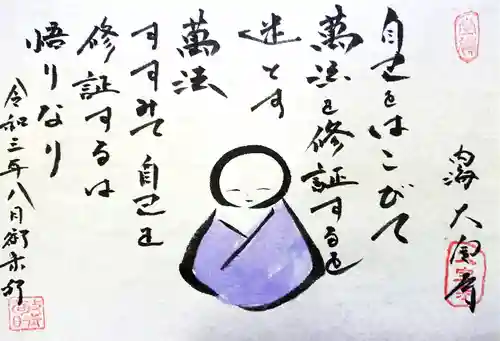 自己をはこびて
萬法を修証するを
迷とす
萬法
すすみて自己を
修証するは
悟りなり
令和三年八月
大